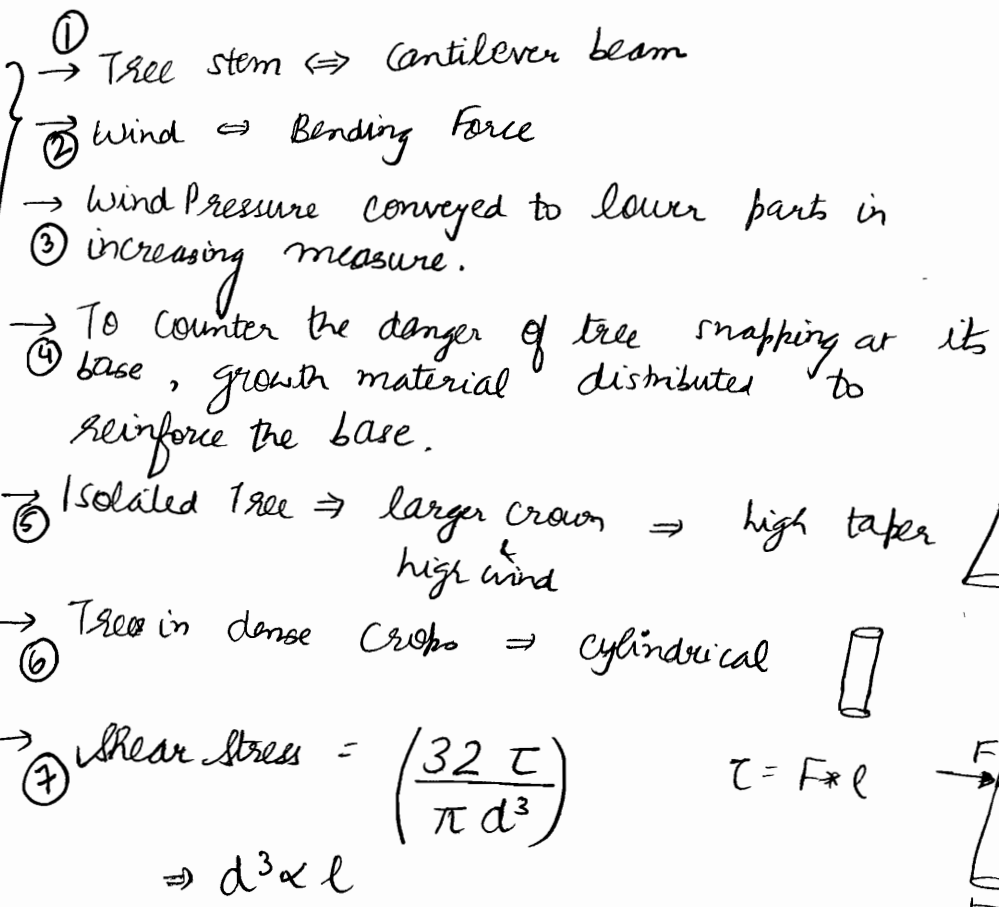 ①
→ Tree stem ⇔ Cantilever beam
→ ② Wind ⇔ Bending Force
→ Wind Pressure conveyed to lower parts in
③ increasing measure.
→ To counter the danger of tree snapping at its
④ base, growth material distributed to
reinforce the base.
→ ⑤ Isolated Tree ⇒ larger crown ⇒ high taper
high wind
→ ⑥ Trees in dense Crops ⇒ cylindrical
→ ⑦ Shear Stress = (32 τ / π d³) τ = F * l F
⇒ d³ ∝ l